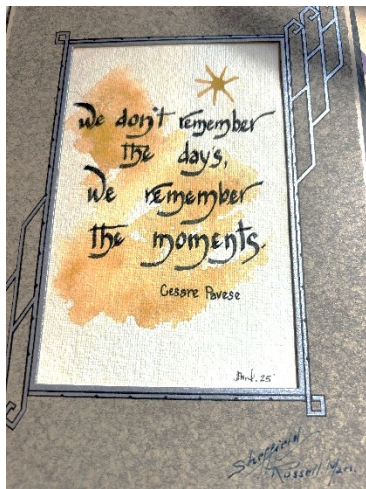 we don't remember
the day's,
we remember
the moments.
Cesare Pavese
25
Sheffield
Russell